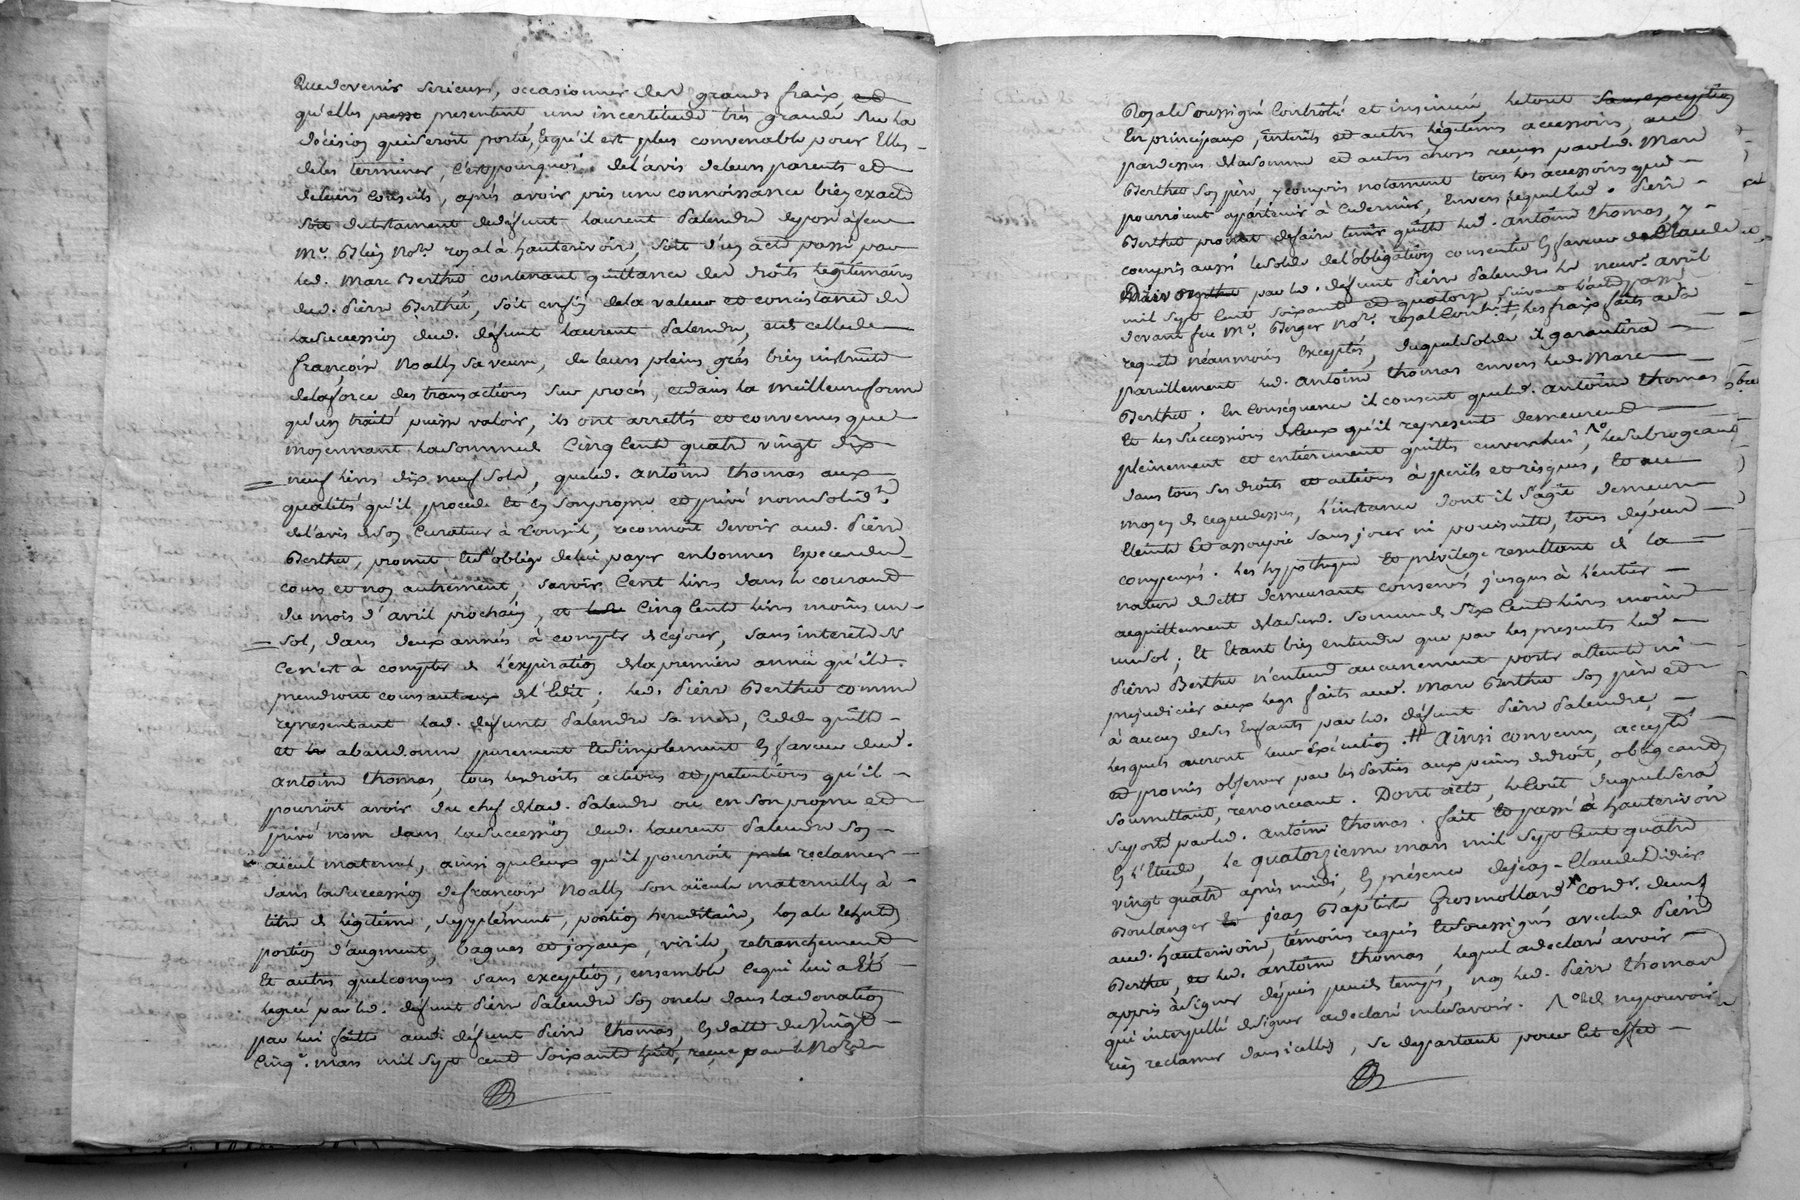 devenir serieux, occasionner des grands fraix,
qu'elles presentent, une incertitude très grande sur la
décision qui seroit portée, & qu'il est plus convenable pour Elles
de les terminer, c'est pourquoi, de l'avis de leurs parents et
de leurs Conseils, après avoir pris une connoissance bien exacte
soit du testament dud. défunt laurent Palendre
Me. royal à hauterivoire, soit d'un acte passé par
led. Marc Berthet contenant quittance des droits légitimaires
dud. Pierre Berthet, soit enfin de la valeur et concistance de
la succession dud. défunt laurent Palendre, et de celle de
françoise Noally sa veuve, de leurs pleins grés bien instruits
de la force des transactions sur procés, et dans la meilleure forme
qu'un traité puisse valoir, ils ont arrettés et convenus que
moyennant la somme de Cinq Cents quatre vingt dix
neuf livres dix neuf sols, que led. antoine thomas aux
qualités qu'il procede Et en son propre et privé nom solidt.
de l'avis de son Curateur à Conseil, reconnoit devoir aud. Pierre
Berthet, promet et s'oblige de lui payer en bonnes Especes du
cours et non autrement, savoir Cent livres dans le courant
du mois d'avril prochain, et Cinq Cents livres moins un
sol, dans deux années à compter de ce jour, sans interets si
Ce n'est à compter de l'expiration de la premiere année qu'ils
prendront cours au taux de l'Edit; led. Pierre Berthet comme
representant lad. défunte Palendre sa mere, Cede quitte
et abandonne purement et simplement En faveur dud.
antoine thomas, tous les droits actions et pretentions qu'il
pourroit avoir du chef de lad. Palendre ou en son propre et
privé nom dans la succession dud. laurent Palendre son
aïeul maternel, ainsi que ceux qu'il pourroit reclamer
dans la succession de françoise Noally son aïeule maternelle à
titre de légitime, supplément, portion héréditaire,
portion d'augment, bagues et joyaux, virile, retranchement
Et autres quelconques sans exception, ensemble ce qui lui a Eté
legué par led. défunt Pierre Palendre son oncle dans la donation
par lui faitte aud. défunt Pierre thomas, En datte du Vingt
Cinq. mars mil sept cent soixante huit, reçue par le Nore.
Royal soussigné Controlé et insinué, le tout sans exception
En principaux, interets et autres légitimes accessoires, au
par dessus de la somme et autres choses reçues par led. Marc
Berthet son père, y compris notament tous les accessoires que
pourroient apartenir à Ce dernier, Envers lequel led. Pierre
Berthet promet de faire tenir quitte led. antoine thomas, y
compris aussi le solde de l'obligation consentie En faveur de Claude
par led. défunt Pierre Palendre le neuf. avril
mil sept Cent soixante et quatorze suivant l'acte passé
devant feu Me. Berger Nore. royal les fraix faits a sa
requete neanmoins Exceptés, duquel solde il garantira
pareillement led. antoine thomas envers led. Marc
Berthet. En Conséquence il consent que led. antoine thomas
Et les successions de Ceux qu'il represente demeurent
pleinement et entierement quittes envers lui, le subrogeant
dans tous ses droits et actions à perils et risques, Et au
moyen de ce que dessus, l'instance dont il s'agit demeure
Eteinte Et assoupie sans jours ni poursuitte, tous dépens
compensés. Les hypotheques Et privilege resultant de la
nature de dette demeurant conservés jusques à l'entier
acquittement de lad. somme de Six Cents livres moins
un sol; Et Etant bien entendu que par les presentes led.
Pierre Berthet n'entend aucunement porter atteinte ni
prejudicier aux legs faits aud. Marc Berthet son père et
à aucun de ses Enfants par led. défunt Pierre Palendre,
lesquels auront leur éxécution. # Ainsi convenu, accepté
et promis observer par les Parties aux peines de droit, obligeant
soumettant, renonceant. Dont acte, le Cout duquel sera
suporté par led. antoine thomas. fait et passé à hauterivoire
En l'Etude, Le quatorzieme mars mil sept Cent quatre
vingt quatre après midi, En présence de jean-Claude Didier
Boulanger Et jean Baptiste Grosmolland Cordr. demt.
aud. hauterivoire, témoins requis et soussignés avec led. Pierre
Berthet, et led. antoine thomas, lequel a declaré avoir
appris à signer depuis peu de temps, non led. Pierre thomas
qui interpellé de signer a declaré ne le savoir. ne pouvoir
rien reclamer dans icelles, se departant pour cet effet